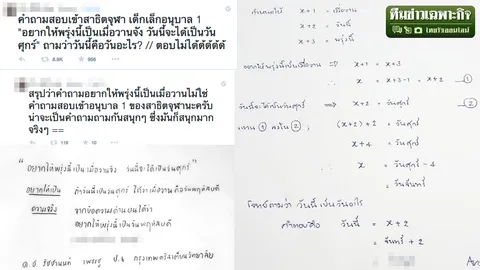 คำถามสอบเข้าสาธิตจุฬา เด็กเล็กอนุบาล 1
"อยากให้พรุ่งนี้เป็นเมื่อวานจัง วันนี้จะได้เป็นวัน
ศุกร์" ถามว่าวันนี้คือวันอะไร? // ตอบไม่ได้ดัดัดัดัดั
สรุปว่าคำถามอยากให้พรุ่งนี้เป็นเมื่อวานไม่ใช่
คำถามสอบเข้าอนุบาล 1 ของสาธิตจุฬานะครับ
น่าจะเป็นคำถามถามกันสนุกๆ ซึ่งมันก็สนุกมาก
จริงๆ ==
"อยากให้พรุ่งนี้เป็นเมื่อวานจัง วันนี้จะได้เป็นวันศุกร์"
อยากให้เป็น ถ้าวันนี้เป็นวันศุกร์ ได้ว่าเมื่อวานคือวันพฤหัสบดี
ความจริง จากข้อความด้านบนได้ว่า
อยากให้พรุ่งนี้เป็นวันพฤหัสบดี
กำหนดให้ x+1 = เมื่อวาน
x+2 = วันนี้
x+3 = พรุ่งนี้
อยากให้พรุ่งนี้เป็นเมื่อวาน ⟹ x+1 = x+3
x = x+3-1 = x+2 ①
วันนี้จะได้เป็นวันศุกร์ ⟹ x+2 = วันศุกร์ ②
แทน ① ลงใน ② ; (x+2)+2 = วันศุกร์
x+4 = วันศุกร์
x = วันศุกร์ -4
= วันจันทร์
โจทย์ถามว่า วันนี้ เป็นวันอะไร
คำตอบคือ วันนี้ = x+2
= จันทร์ +2
Ans
ทีนข่าวเฉพาะกิจ
ไทยรัฐออนไลน์